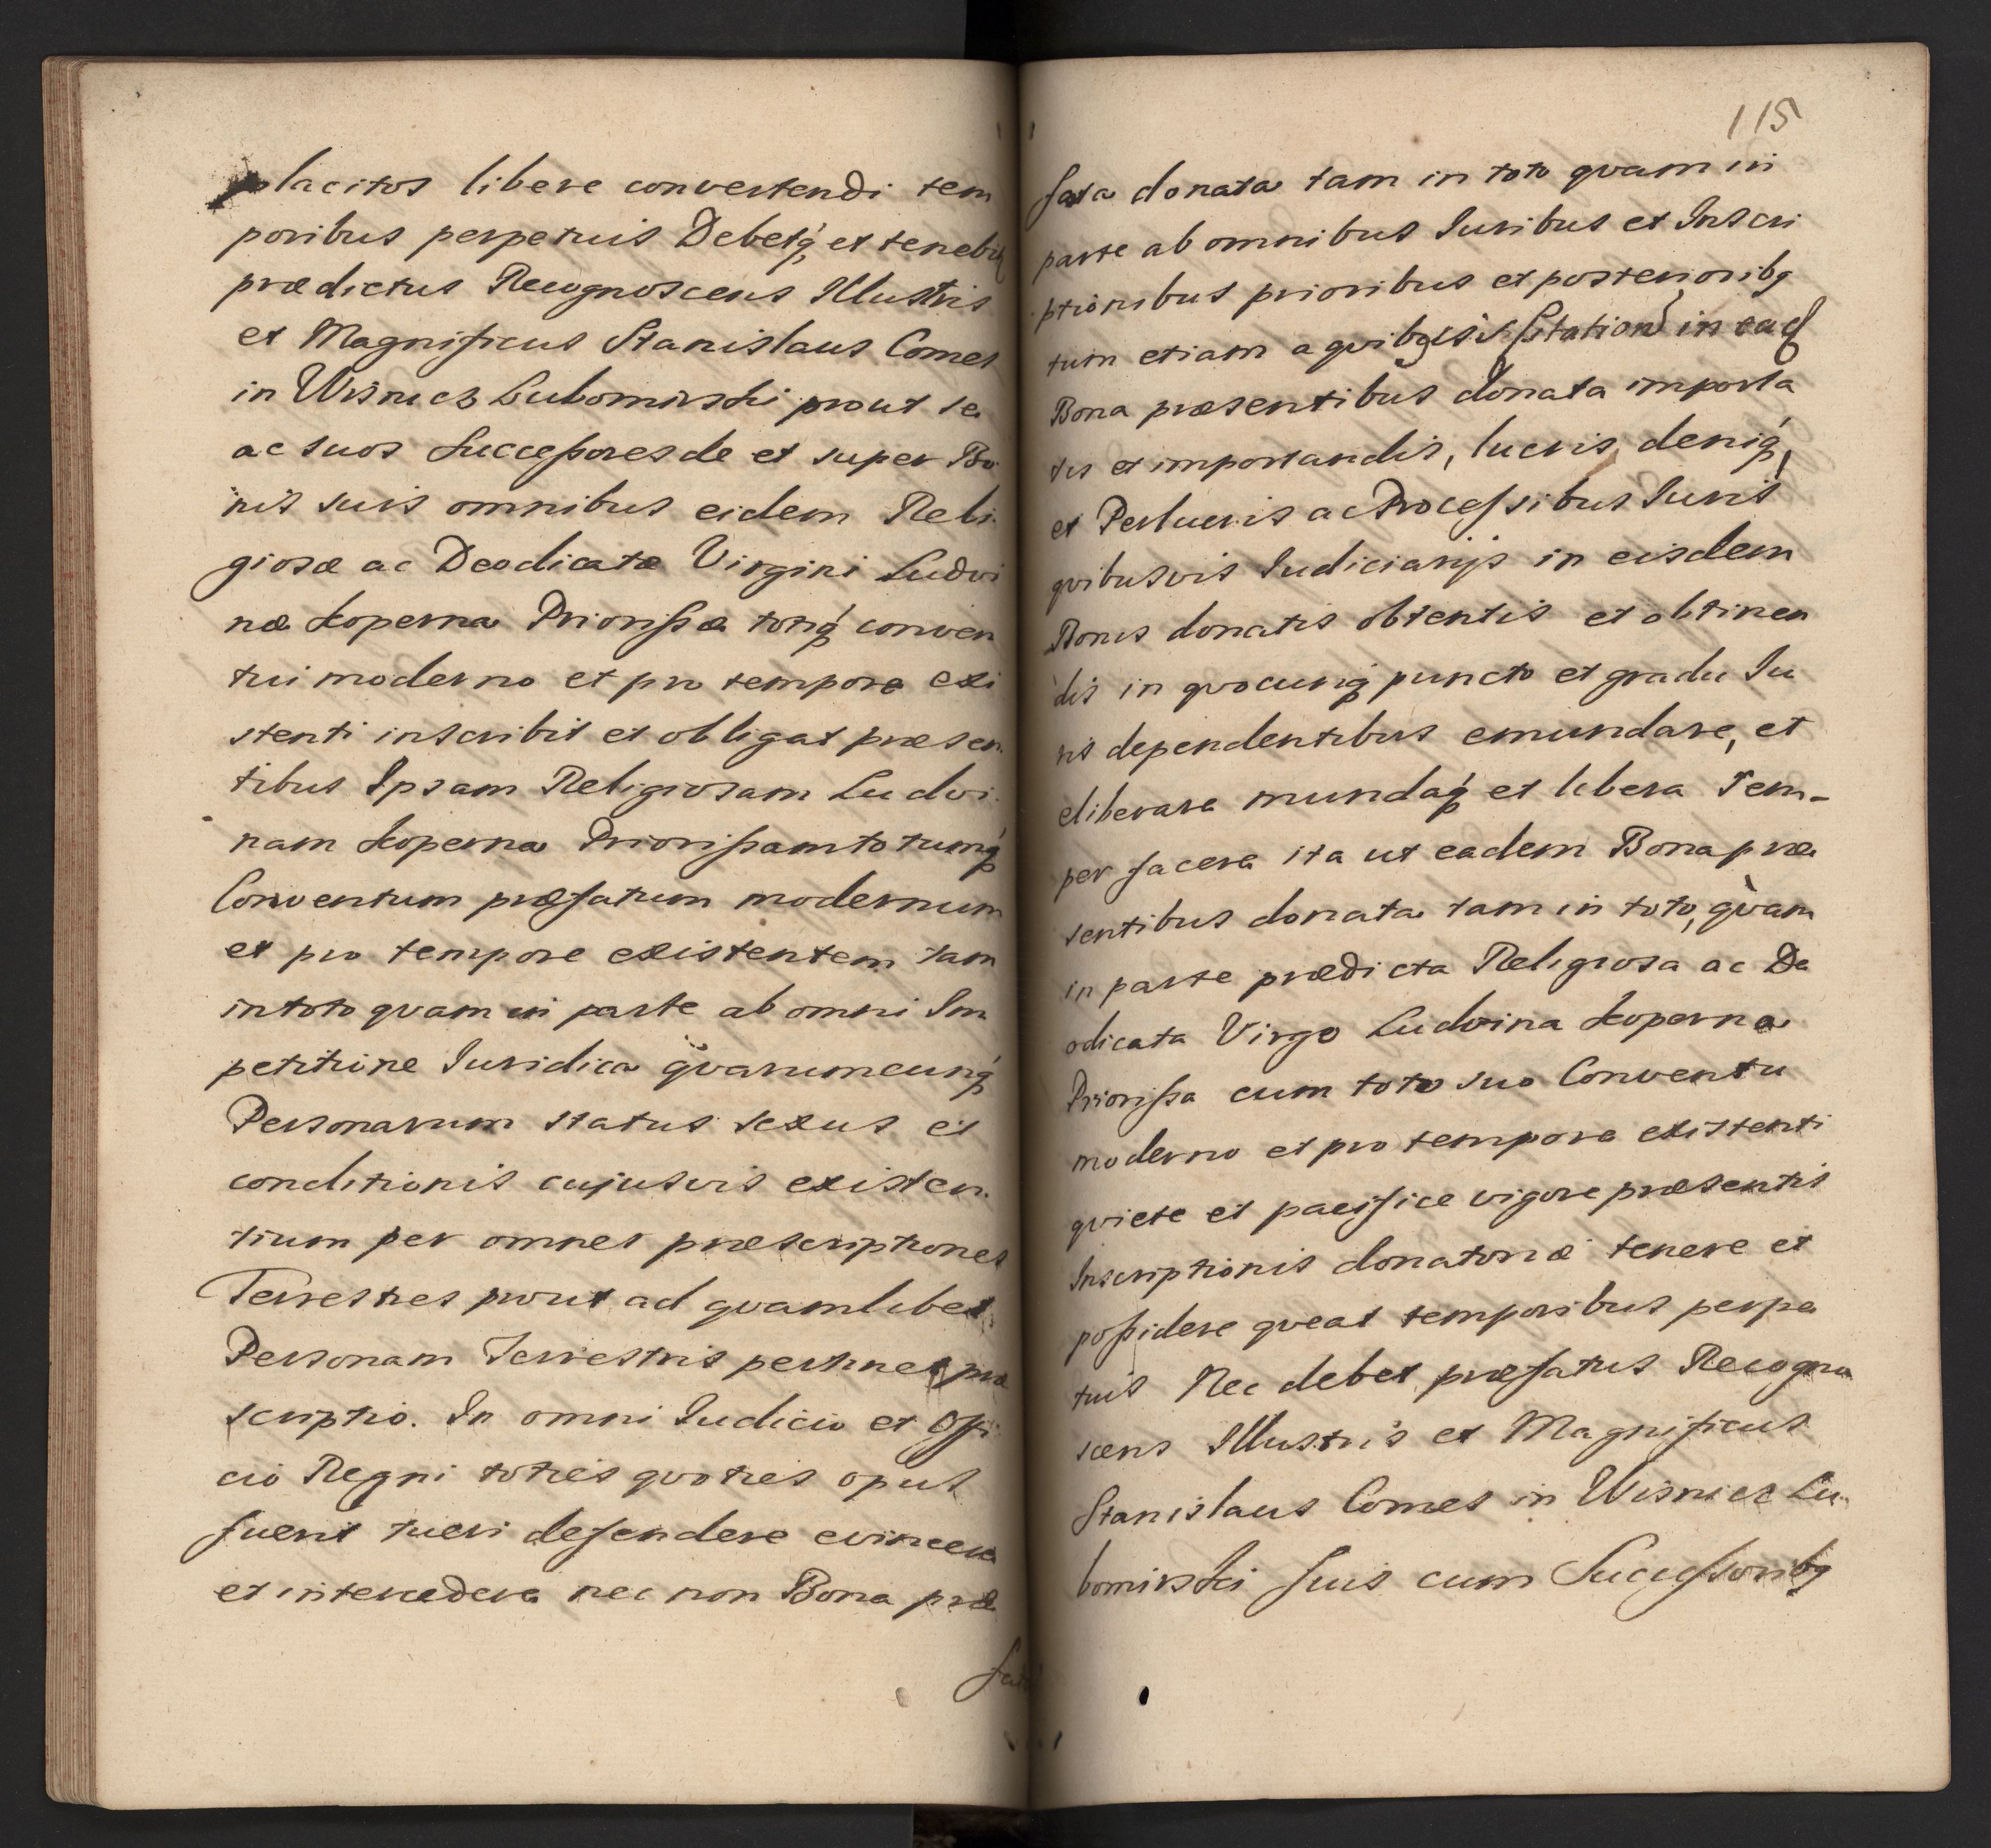 placitos libere convertendi tem
poribus perpetuis Debetq́, et tenebit
prædictus Recognoscens Illustris
et Magnificus Stanislaus Comes
in Wisnicz Lubomirski prout se
ac suos Successores de et super Bo
nis suis omnibus eidem Reli
giosæ ac Deodicatæ Virgini Ludwi
næ Koperna Priorissæ totiq́ conven
tui moderno et pro tempore exi
stenti inscribit et obligat præsen
tibus Ipsam Religiosam Ludwi
nam Koperna Priorissam totumq́
Conventum præfatum modernum
et pro tempore existentem tam
in toto quam in parte ab omni Im
petitione Iuridica quarumcunq́
Personarum status sexus et
conditionis cujusvis existen
tium per omnes præscriptiones
Terrestres prout ad quamlibet
Personam Terrestris pertinet præ
scriptio. In omni Iudicio et Offi
cio Regni toties quoties opus
fuerit tueri defendere evincere
et intercedere nec non Bona præ
fata
115
fata donata tam in toto quam in
parte ab omnibus Iuribus et Inscri
ptionibus prioribus et posterioribq
tum etiam a quibq in ead
Bona præsentibus donata importa
tis et importandis, lucris, deniq́,
et Perlucris ac Processibus Iuris
quibusvis Iudiciarijs in eisdem
Bonis donatis obtentis et obtinen
dis in quocunq́ puncto et gradu Iu
ris dependentibus emundare, et
eliberare mundaq́ et libera Sem-
per facere ita ut eadem Bona præ
sentibus donata tam in toto, quam
in parte prædicta Religiosa ac De
odicata Virgo Ludwina Koperna
Priorissa cum toto suo Conventu
moderno et pro tempore existenti
quiete et pacifice vigore præsentis
Inscriptionis donatoriæ tenere et
possidere queat temporibus perpe
tuis Nec debet præfatus Recogno
scens Illustris et Magnificus
Stanislaus Comes in Wisnicz Lu
bomirski suis cum Successoribq